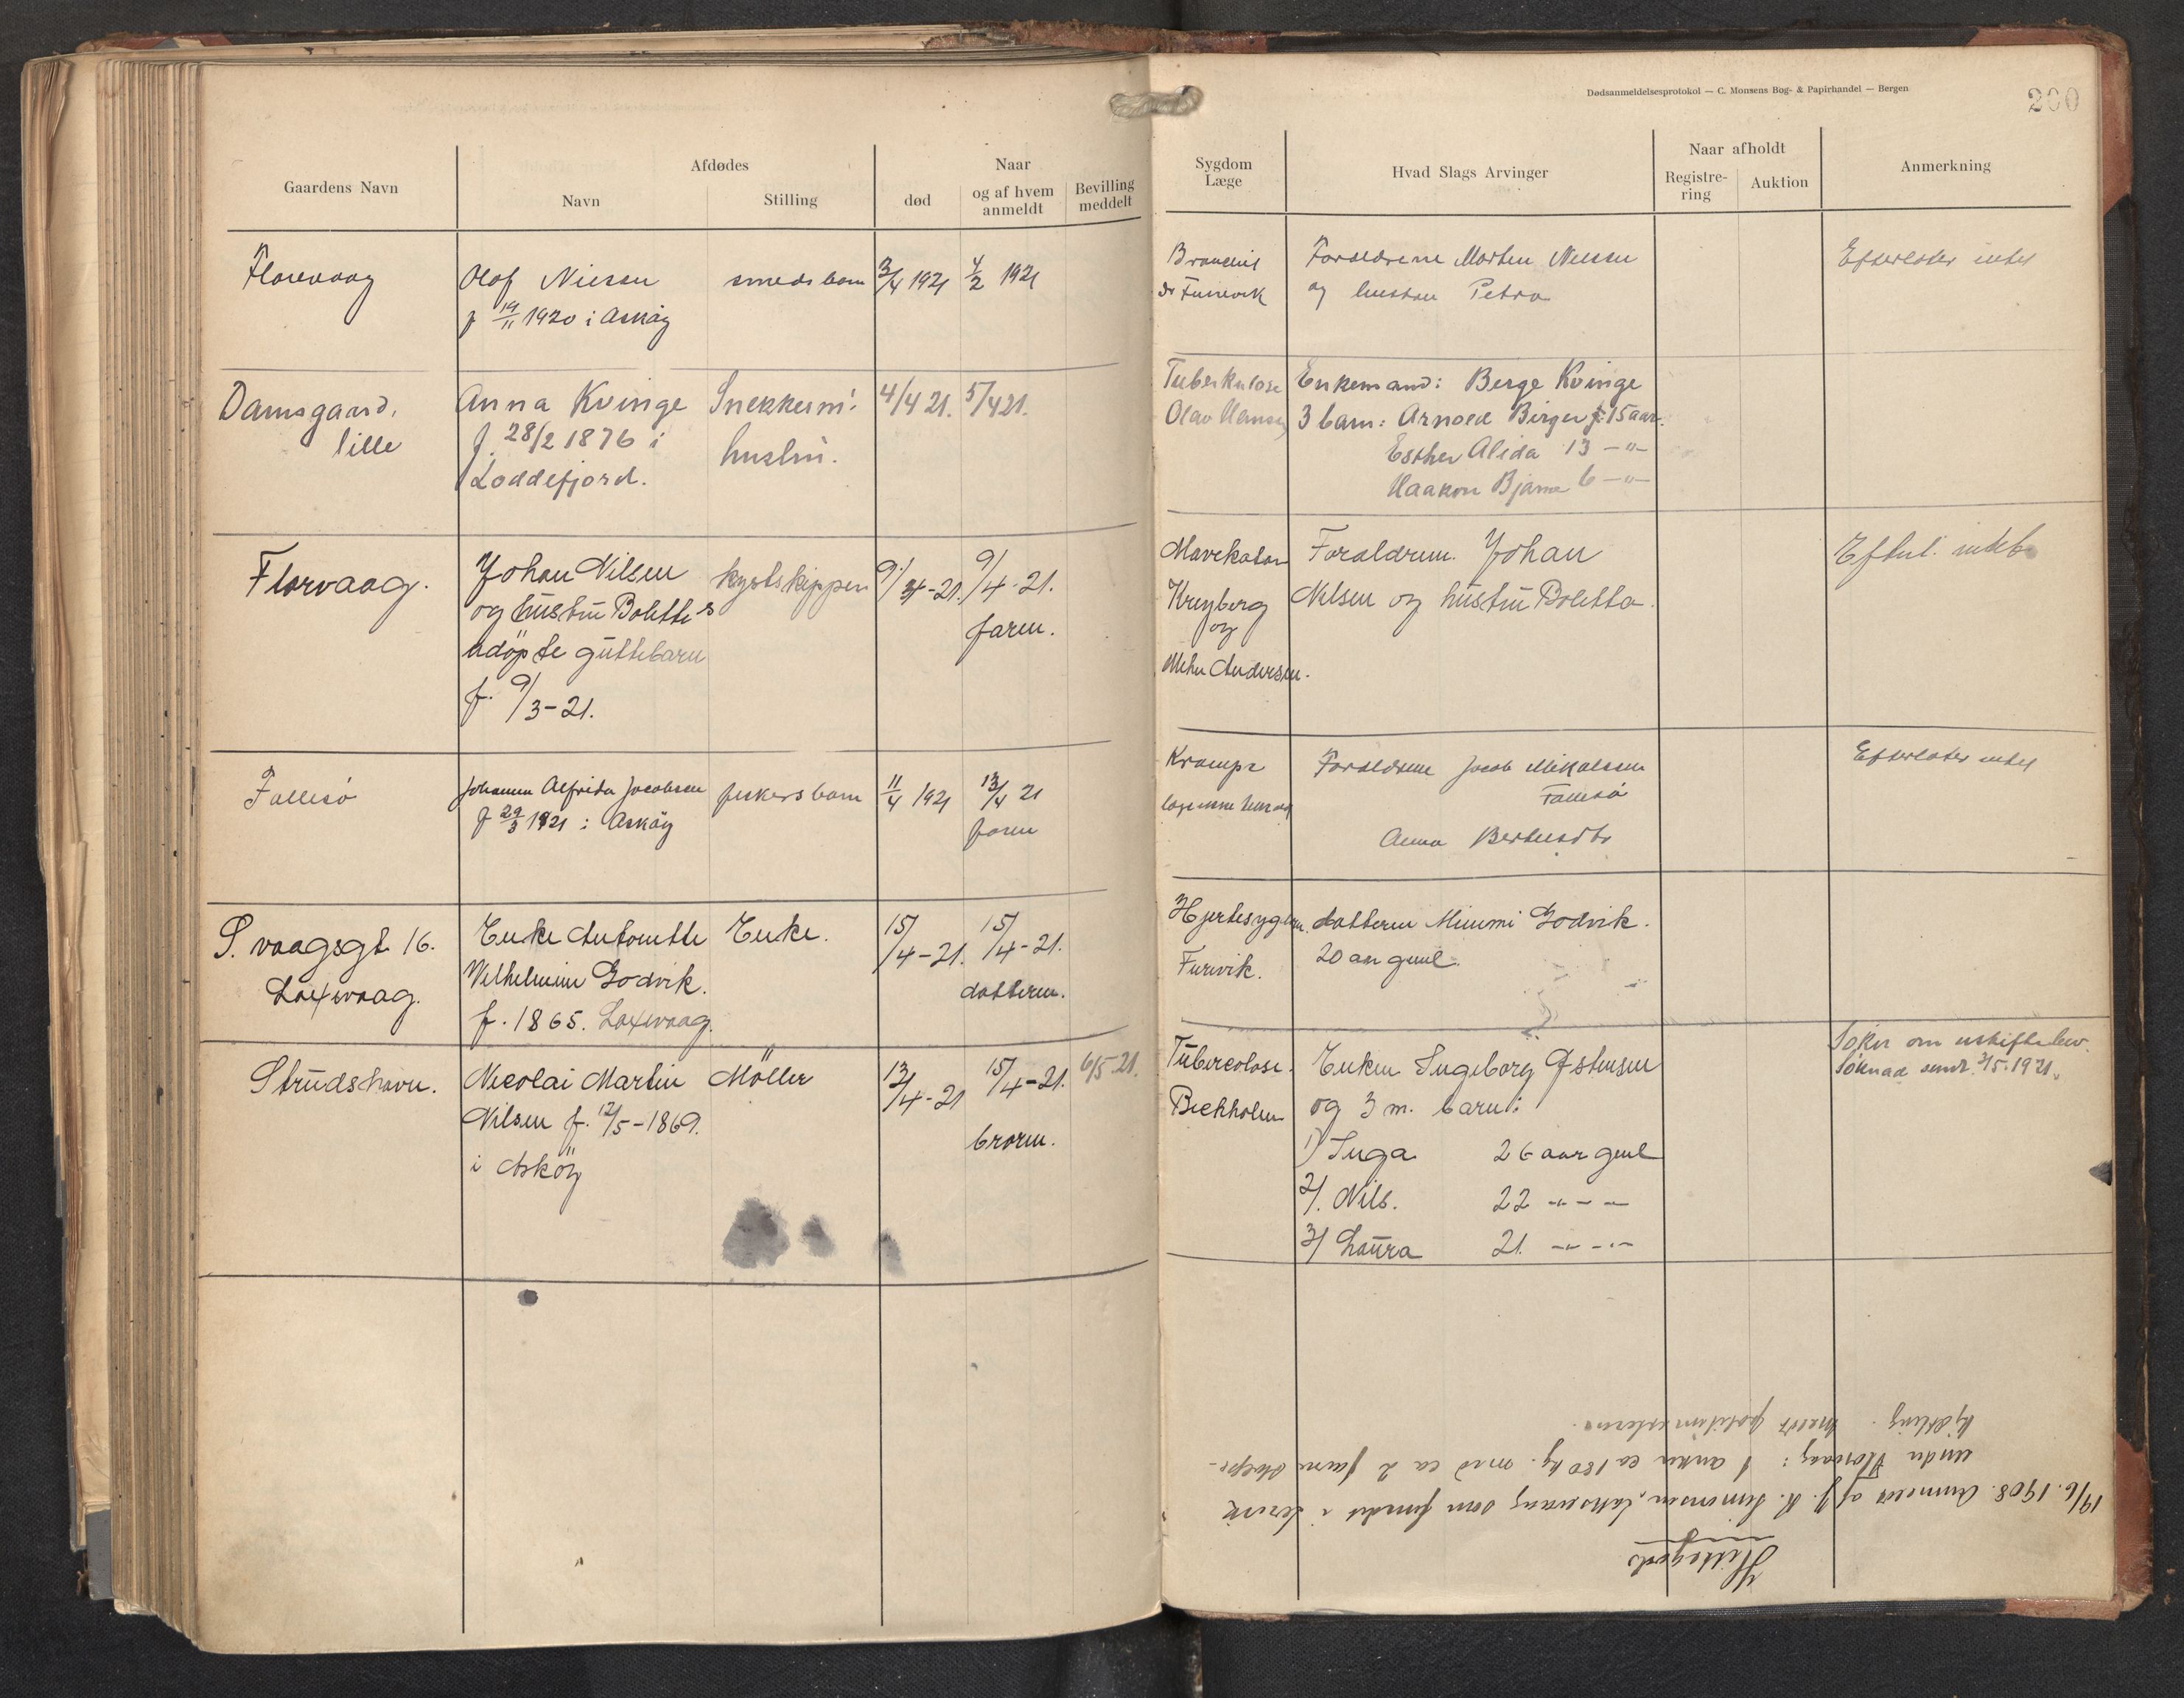 Dødsanmeldelsesprotokol — C. Monsens Bog- & Papirhandel — Bergen
200
Gaardens Navn
Afdødes
Navn
Stilling
Naar
død
og af hvem anmeldt
Bevilling meddelt
Sygdom
Læge
Hvad Slags Arvinger
Naar afholdt
Registre-
ring
Auktion
Anmerkning
Florvaag
Olaf Nilsen
f 19/11 1920 i Askøy
smeds barn
3/4 1921
4/2 1921
Forældrene Morten Nilsen
og hustru Petra
Efterlater intet
Damsgaard,
lille
Anna Kvinge
f. 28/2 1876 i
Loddefjord.
Snekkerm.
hustru.
4/4 21.
5/4 21.
Tuberkulose
Olav Hansen
Enkemand: Berge Kvinge
3 barn: Arnold Birger f. 15 aar.
Esther Alida 13 -"-
Haakon Bjarne 6 -"-
Florvaag.
Johan Nilsen
og hustru Bolettes
udöpte guttebarn
f. 9/3-21.
kystskipper
9/4-21.
9/4-21.
faren.
Mavekatar
Kreyberg
og
Andersen.
Forældrene. Johan
Nilsen og hustru Boletta.
Efterl. intet
Follesö
Johanne Alfrida Jacobsen
f 29/3 1921 i Askøy
fiskers barn
11/4 1921
13/4 21
faren
Krampe
læge ikke
Forældrene Jacob Mikalsen
Follesö
Anna Bertinsdtr
Efterlater intet
S. vaagsgt. 16.
Laxevaag.
Enke Antonette
Vilhelmine Godvik.
f. 1865. Laxevaag.
Enke.
15/4-21.
15/4-21.
datteren.
Hjertesygdom.
Furevik.
datteren Mimmi Godvik.
20 aar gml.
Strudshavn.
Nicolai Martin
Nilsen f. 12/5-1869.
i Asköy
Möller
13/4-21
15/4-21.
broren.
6/5-21.
Tuberculose.
Bechholm
Enken Ingeborg Østensen
og 3 m. barn:
1) Inga 26 aar gml
2/. Nils. 22 -"- -
3/ Laura 21. -"- -
Søker om uskiftebev.
Söknad sendt 3/5.1921.
Hittegods
19/6.1908. Anmeldt af J. R. Simonsen, Laksevaag som fundet i
under Florvaag: 1 anker ca 180 kg. med ca 2 favne
kjætting. meldt politimesteren.